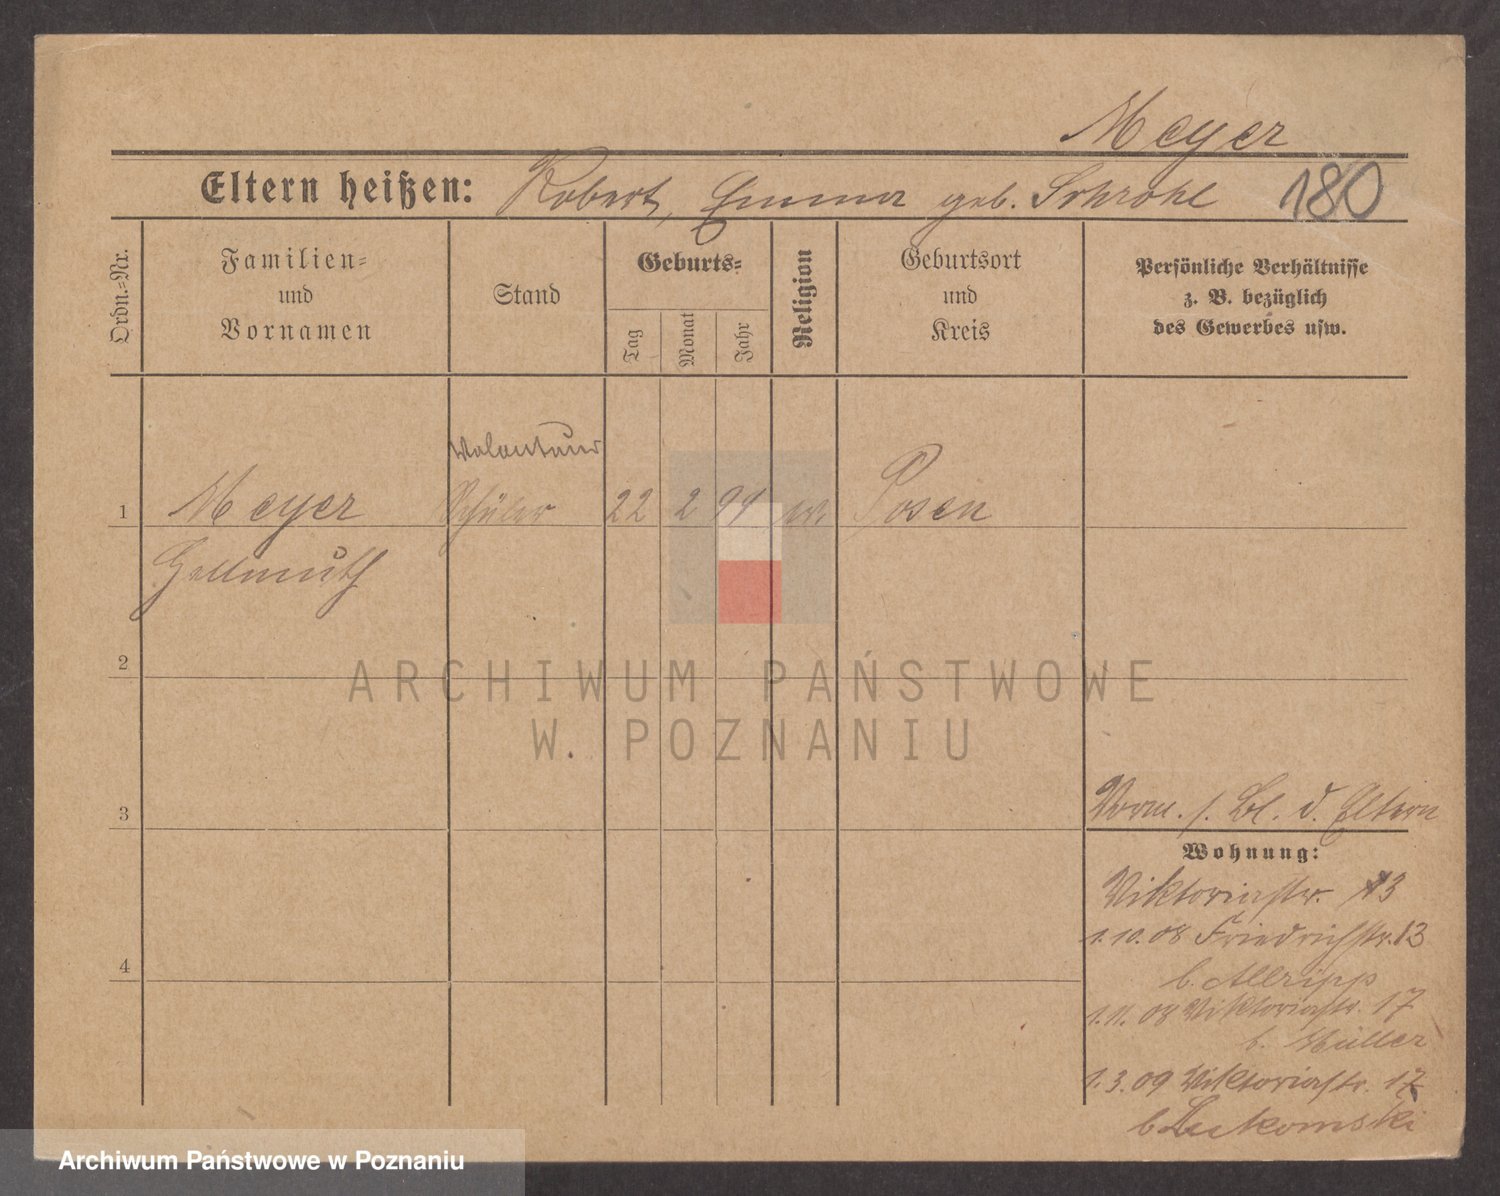 Meyer
Eltern heißen: Robert, Emma geb. Schrohl 180
Ordn.-Nr.
Familien-
und
Vornamen
Stand
Geburts-
Tag
Monat
Jahr
Religion
Geburtsort
und
Kreis
Persönliche Verhältnisse
z. B. bezüglich
des Gewerbes usw.
Volontair
1 Meyer Schüler 22 2 94 Posen
Hellmuth
2
3
4
Vorm. s. Bl. d. Eltern
Wohnung:
Viktoriastr. 13
1.10.08 Friedrichstr. 13
b.
1.11.08 Viktoriastr. 17
b. Müller
1.3.09 Viktoriastr. 17
b Lukomski
ARCHIWUM PAŃSTWOWE
W POZNANIU
Archiwum Państwowe w Poznaniu